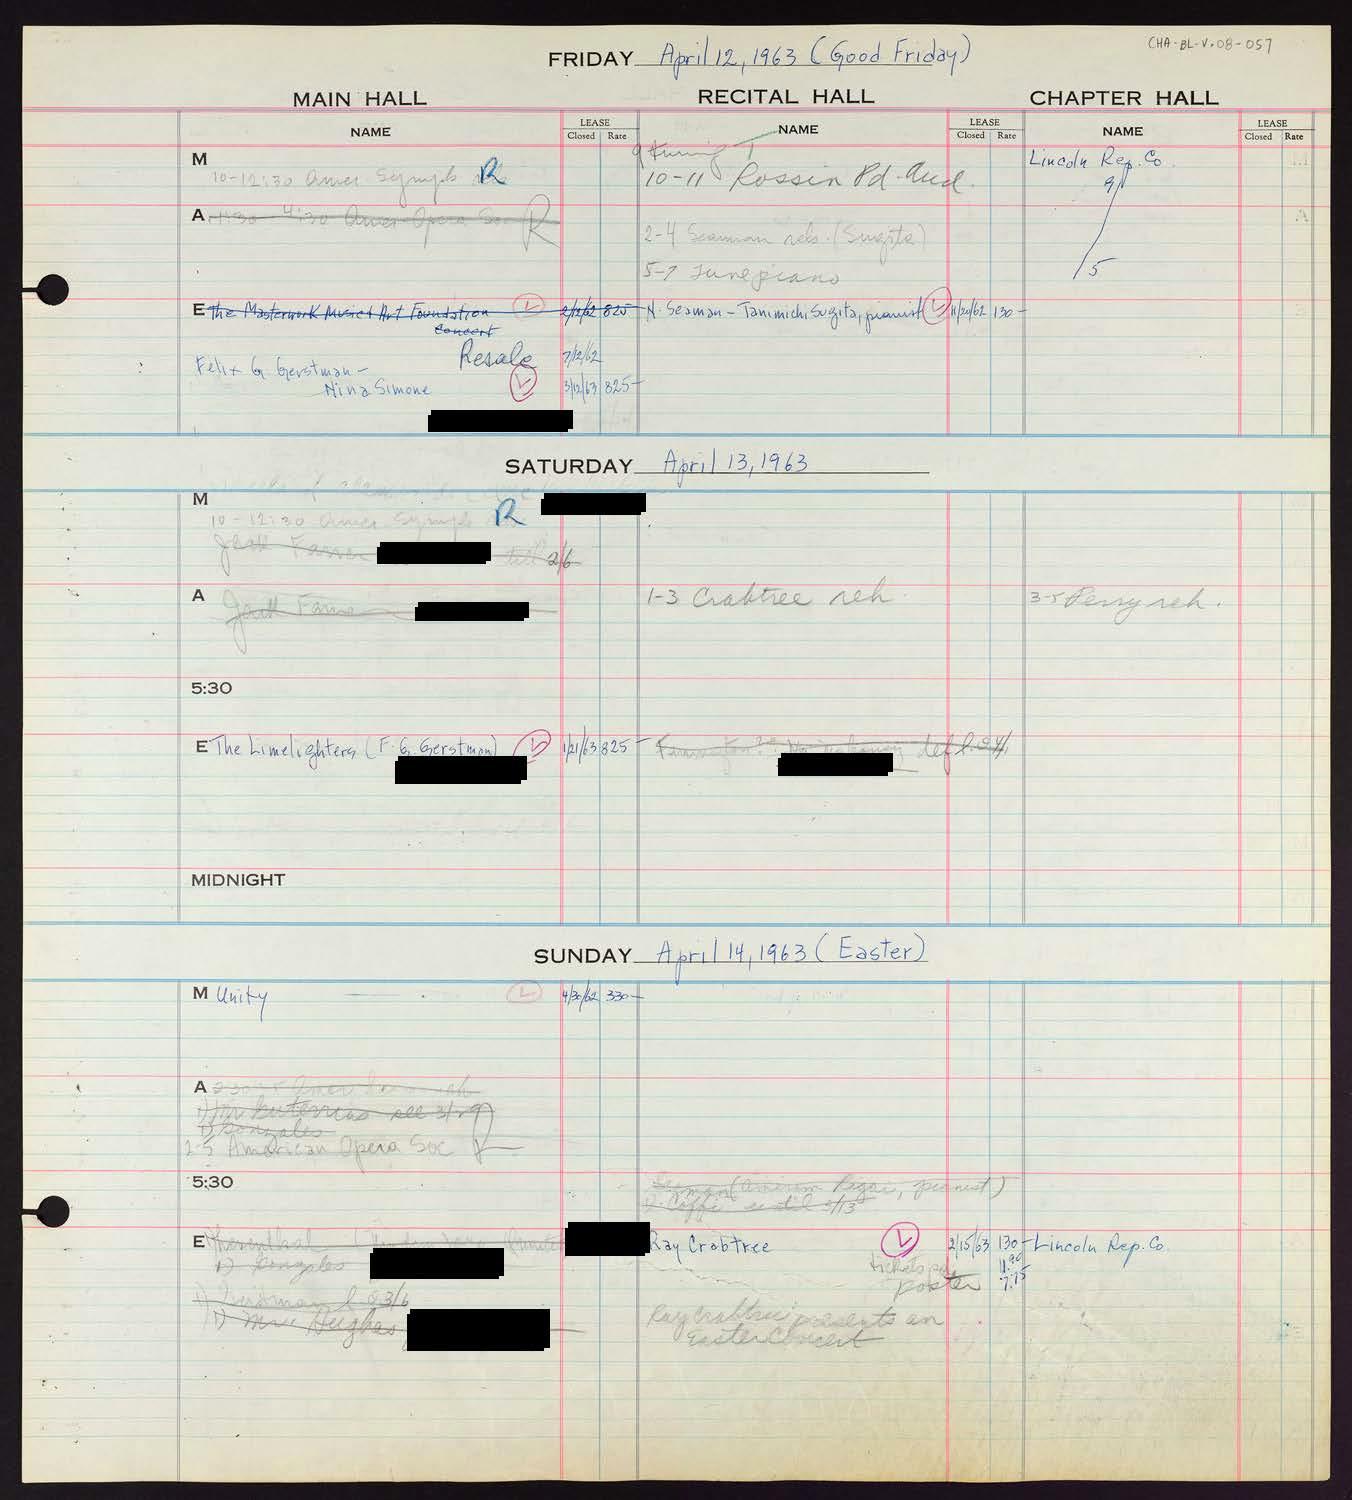 CHA-BL-V.08-057
FRIDAY April 12, 1963 (Good Friday)
MAIN HALL RECITAL HALL CHAPTER HALL
NAME LEASE Closed Rate NAME LEASE Closed Rate NAME LEASE Closed Rate
M
10-12:30 Amer Symph R
9 Tuning
10-11 Rossin Pd. Aud.
Lincoln Rep. Co.
9
5
A 1:30 4:30 Amer Opera Soc R
2-4 Seaman reh. (Sugita)
5-7 Tune piano
E The Masterwork Music & Art Foundation L 2/12/62 825-
Concert
N. Seaman - Tanimichi Sugita, pianist L 11/20/62 130-
Resale 7/12/62
Felix G. Gerstman -
Nina Simone L 3/12/63 825-
SATURDAY April 13, 1963
M
10-12:30 Amer Symph R
till 2/6
A
1-3 Crabtree reh
3-5 Perry reh.
5:30
E The Limelighters (F. G. Gerstman) L 1/21/63 825-
def
MIDNIGHT
SUNDAY April 14, 1963 (Easter)
M Unity L 4/30/62 330-
A
see 3/29
1) Gonzales
2-5 American Opera Soc R
5:30
Seaman ( pianist)
until 3/13
E
1) Gonzales
3/6
1) Mr. Hughes
Ray Crabtree L 2/15/63 130-
tickets pd 11.90
poster 7.75
Ray Crabtree presents an
Easter Concert
Lincoln Rep. Co.